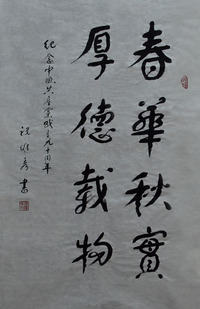 春華秋實
厚德載物
紀念中國共產黨成立九十周年
祝㷉彦書